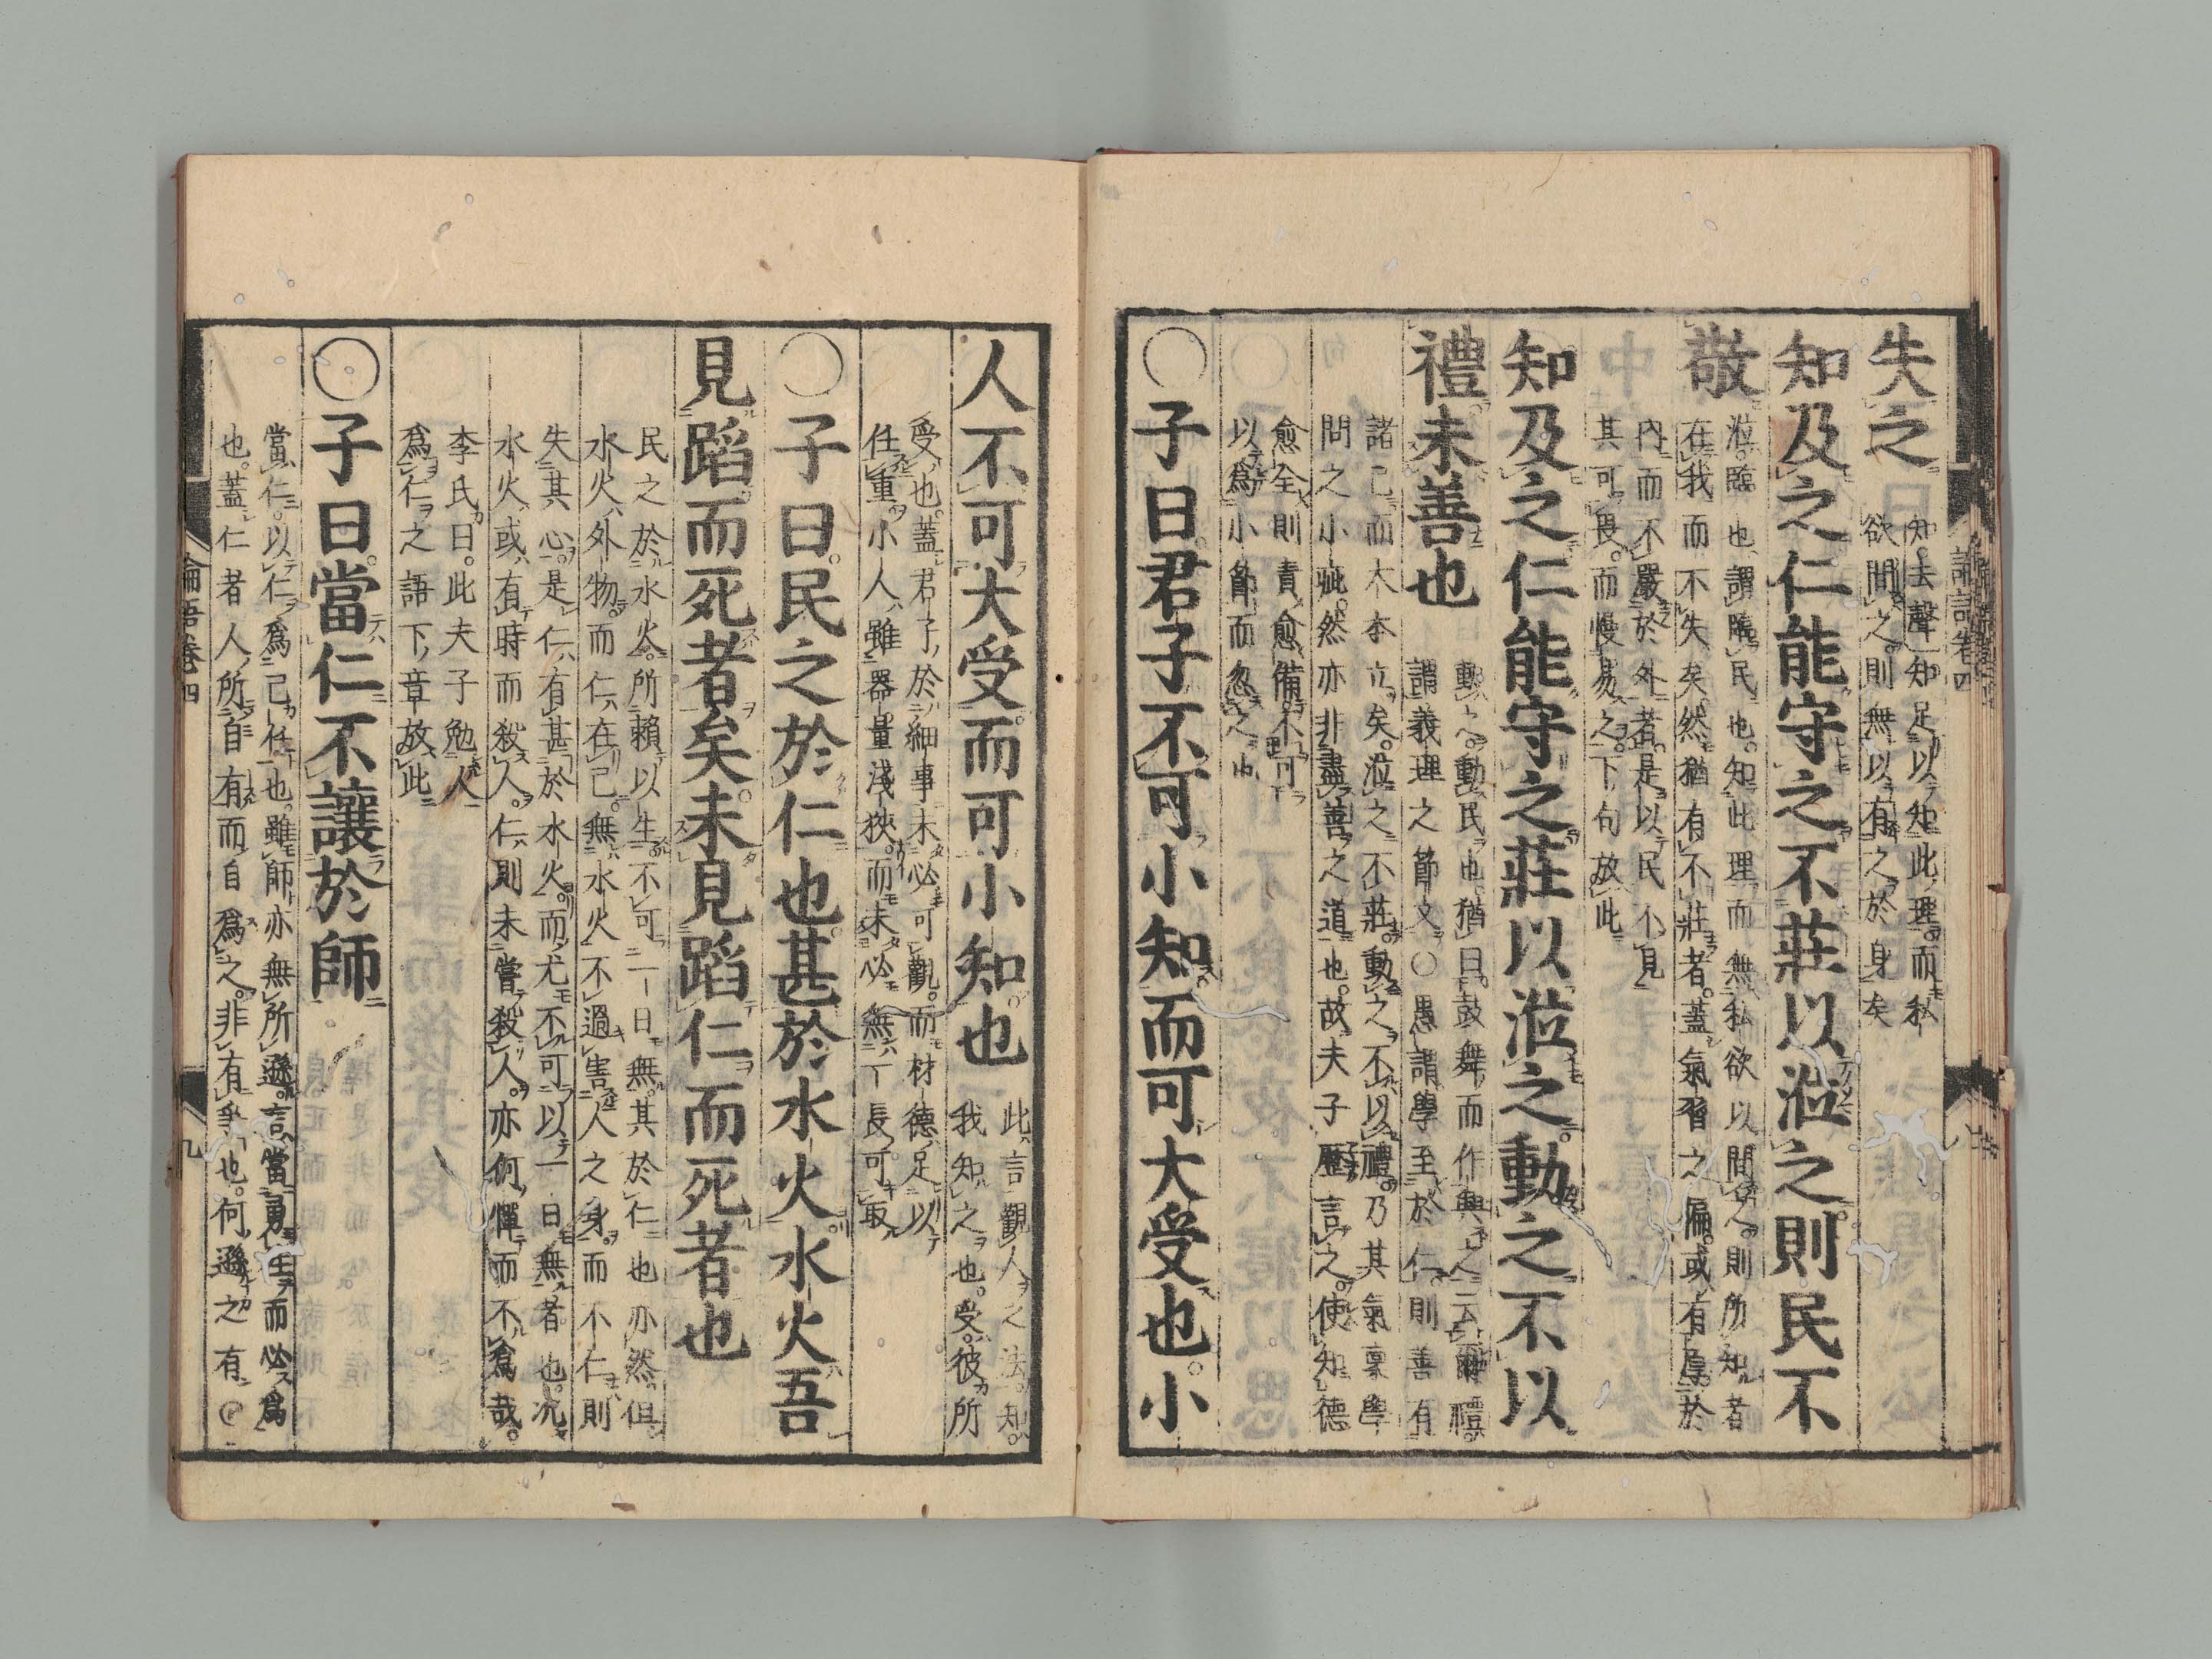 失之
知去聲○知足以知此理而私
欲間之則無以有之於身矣
知及之仁能守之不莊以涖之則民不
敬
涖臨也謂臨民也知此理而無私欲以間之則所知者
在我而不失矣然猶有不莊者蓋氣習之偏或有厚於
內而不嚴於外者是以民不見
其可畏而慢易之下句放此
知及之仁能守之莊以涖之動之不以
禮未善也
動之動民也猶曰鼓舞而作興之云爾禮
謂義理之節文○愚謂學至於仁則善有
諸己而大本立矣涖之不莊動之不以禮乃其氣稟學
問之小疵然亦非盡善之道也故夫子歷言之使知德
愈全則責愈備不可
以為小節而忽之也
○子曰君子不可小知而可大受也小
人不可大受而可小知也
此言觀人之法知
我知之也受彼所
受也蓋君子於細事未必可觀而材德足以
任重小人雖器量淺狹而未必無一長可取
○子曰民之於仁也甚於水火水火吾
見蹈而死者矣未見蹈仁而死者也
民之於水火所賴以生不可一日無其於仁也亦然但
水火外物而仁在己無水火不過害人之身而不仁則
失其心是仁有甚於水火而尤不可以一日無者也況
水火或有時而殺人仁則未嘗殺人亦何憚而不為哉
李氏曰此夫子勉人
為仁之語下章放此
○子曰當仁不讓於師
當仁以仁為己任也雖師亦無所遜言當勇往而必為
也蓋仁者人所自有而自為之非有爭也何遜之有○
論語卷四
九